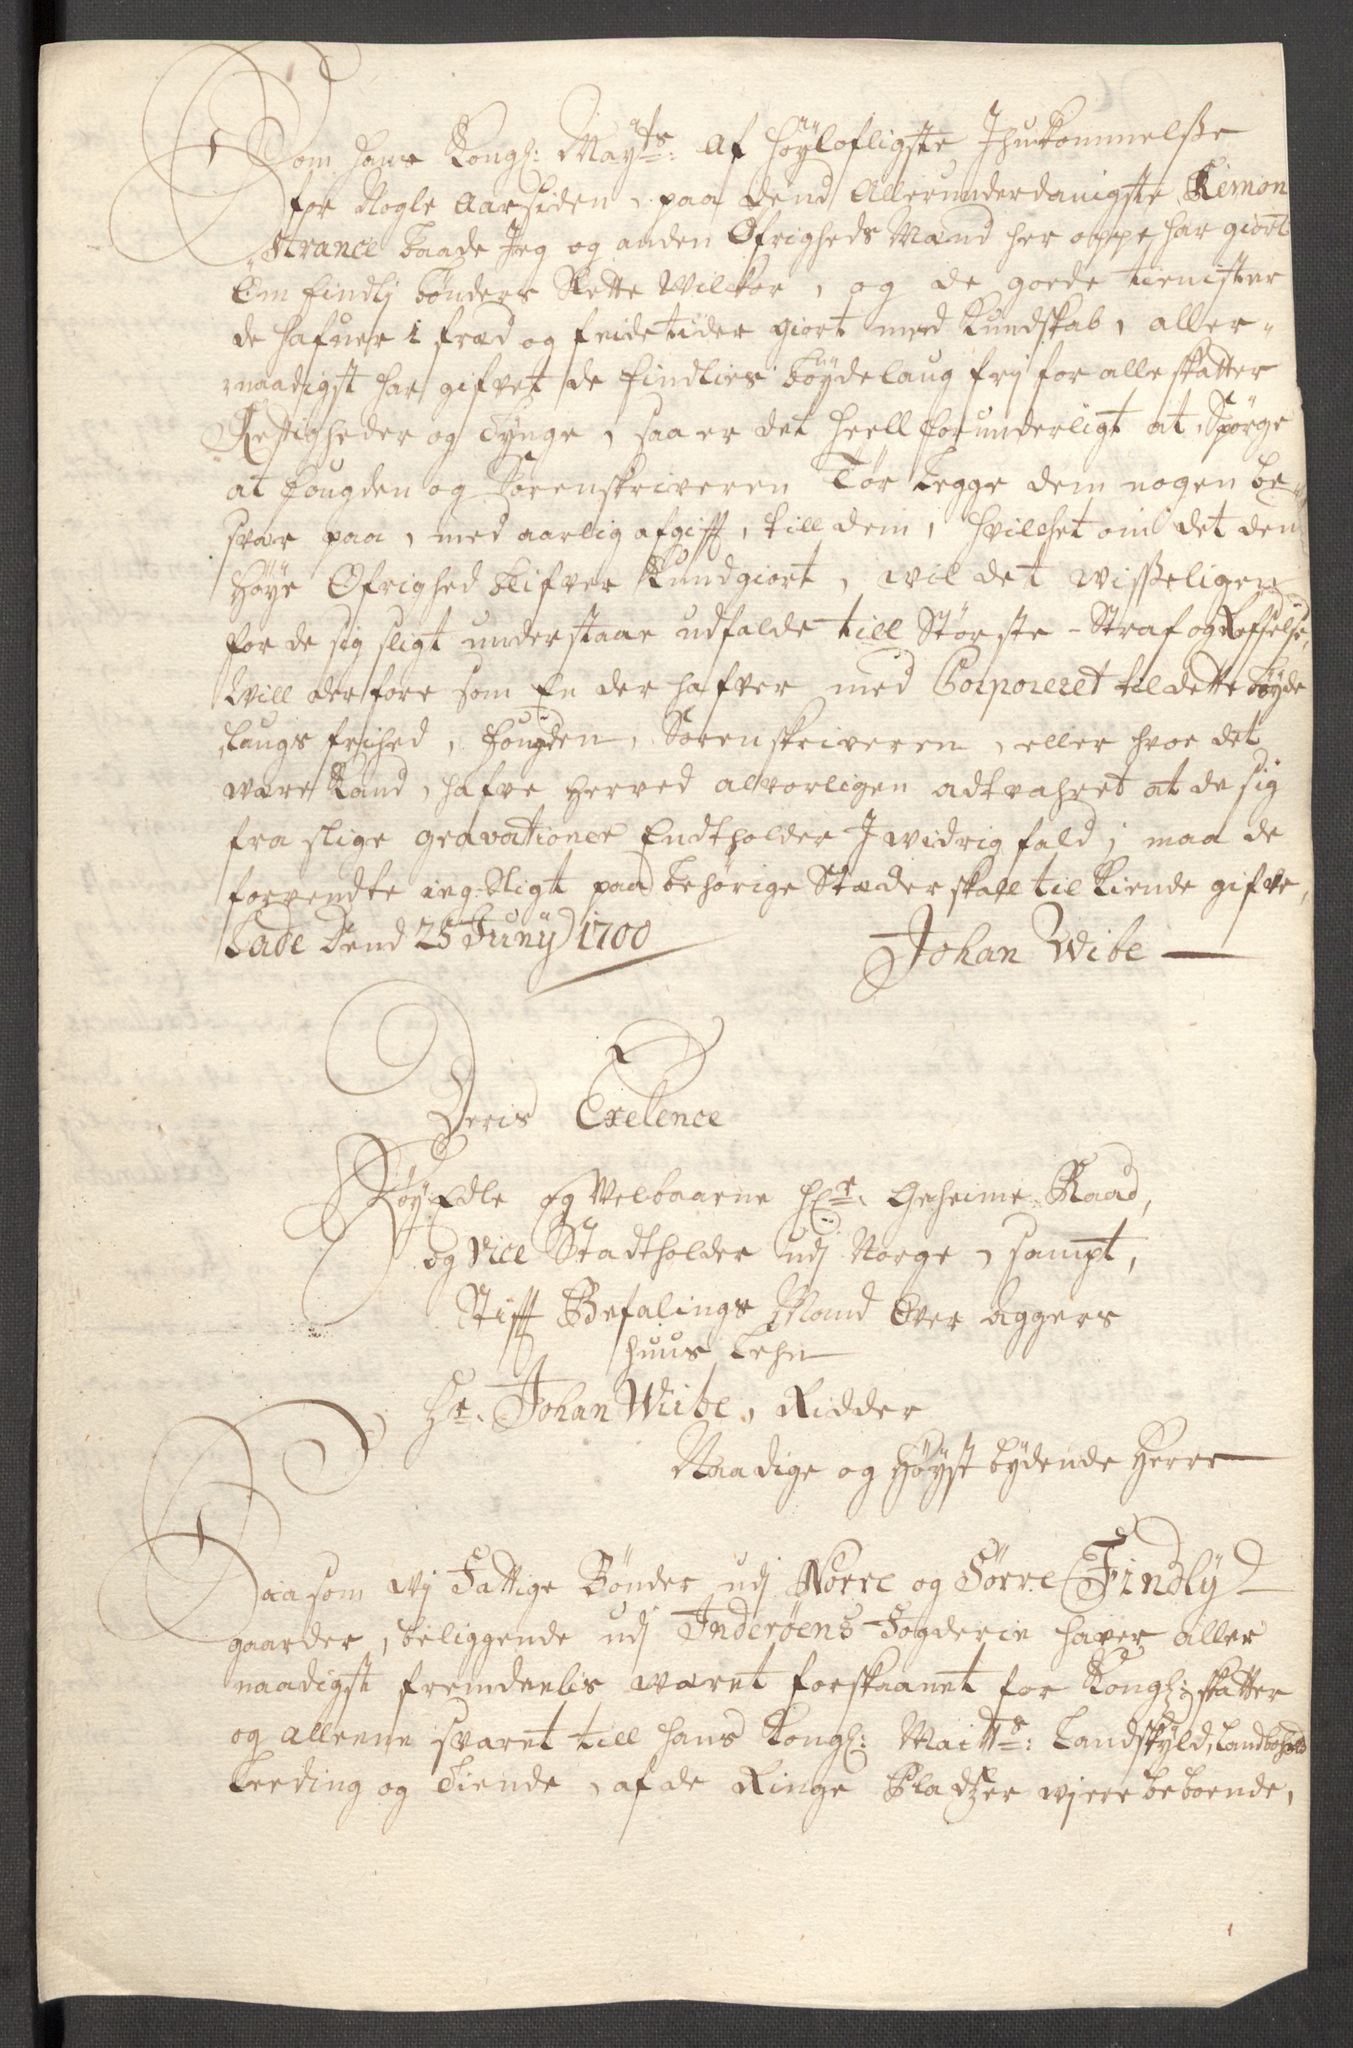 Som hans Kongl: Mayts: af høyloflígste Jhukommelsse
for Nogle Aarsiden, paa dend Allerunderdanigste Remon
strance baade Jeg og anden Øfrigheds Mænd her oppe har giort
Om findlj bønders Slette Wilkor, og de goede tienister
de hafuer i fred og feide tider giort med kundskab, aller-
naadigst har gifvet de findlies bøydelaug frj for alle skatter
Rettigheder og Tynge, saa er det heell forunderligt at Spørge
at fougden og Sorenskriveren Tør legge dem nogen be-
svær paa, med aarlig afgifft, till dem, hvilchet om det den
Høye Øfrighed blifver kundgiort, wil det wisseligen
for de sig sligt understaar udfalde till Største Straf og Refselse,
Will derfore som En der hafver med Corporeret til dette bøyde
laugs frihed, fougden, Sorenskriveren, eller hvoe det
være kand, hafve herved alvorligen advahret at de sig
fra slige gravationer Endtholder J widrig fald, maa de
forvendte ieg Sligt paa behørige Stæder skall til kiende gifve,
Lade Dend 25 Junÿ 1700
Johan Wibe
Deris Exelence
Høy Edle og Velbaarne Hr: Geheime Raad,
og Vice Stadtholder udj Norge, sampt,
Stifft Befalings Mand Over Aggers
huus Lehn
Hr. Johan Wibe, Ridder
Naadige og Høyst bydende Herre
Saasom wj Fattige Bønder udj Norre og Sørre Findlÿ
gaarder, beliggende udj Inderøens Fogderie haver aller
naadigst fremdeelis været forskaanet for Kongl: skatter
og alleene svaret till hans Kongl: Maitts: Landskyld, Landbohold
Leeding og Tiende, af de Ringe Pladtzer wj ere beboende,